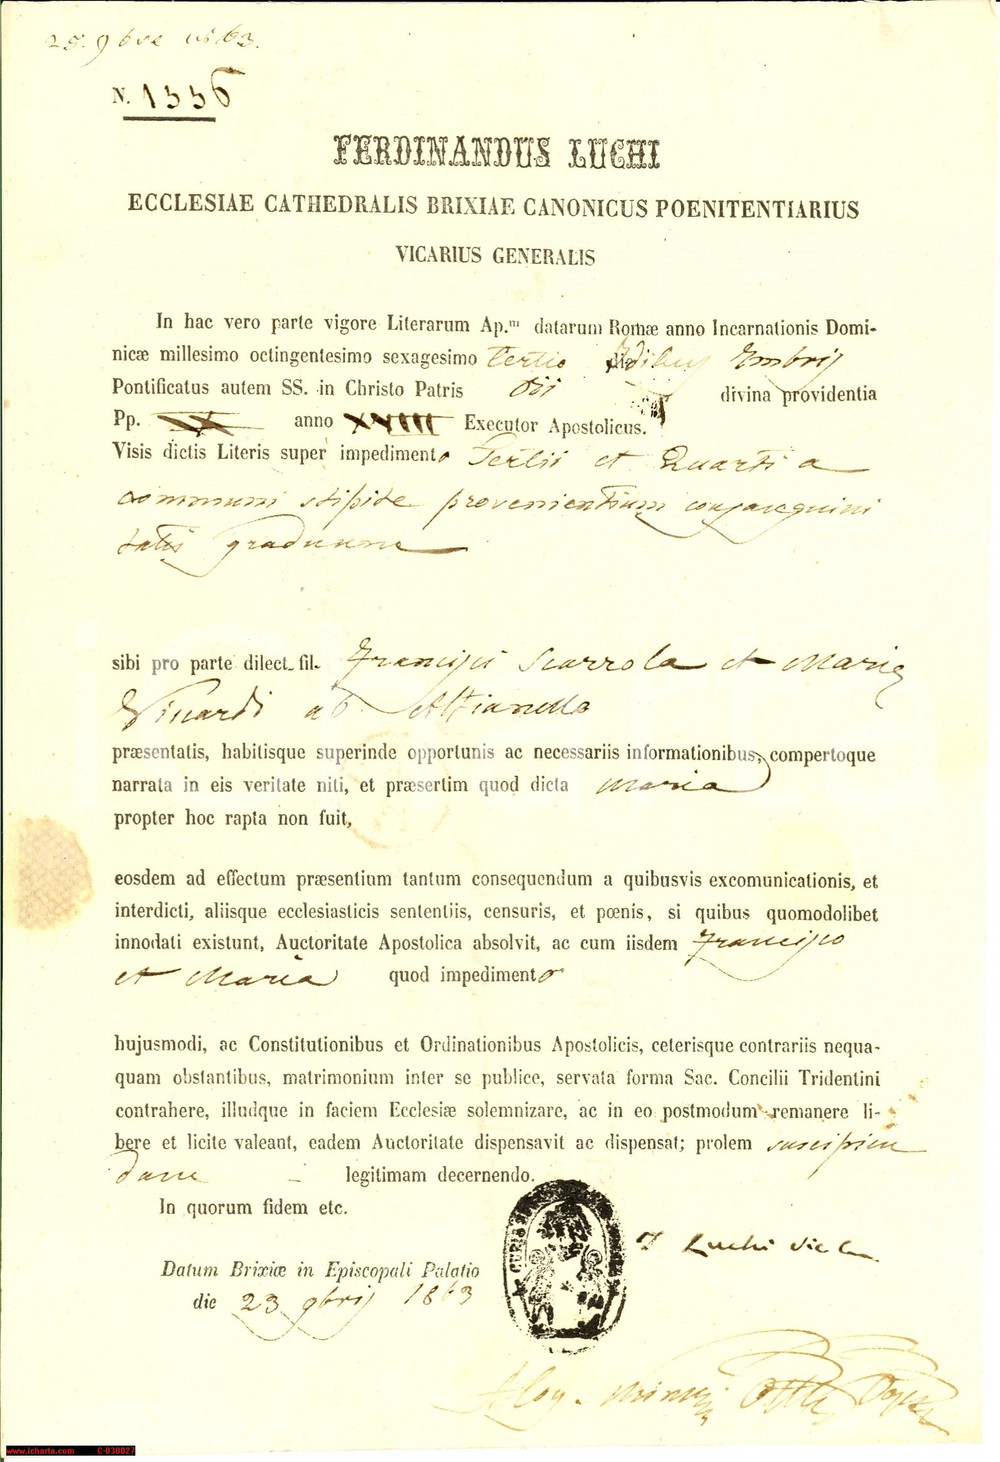 25. 9bre 1863.
N. 1336
FERDINANDUS LUCHI
ECCLESIAE CATHEDRALIS BRIXIAE CANONICUS POENITENTIARIUS
VICARIUS GENERALIS
In hac vero parte vigore Literarum Ap.m datarum Romæ anno Incarnationis Domi-
nicæ millesimo octingentesimo sexagesimo tertio Idibus
Pontificatus autem SS. in Christo Patris Pii divina providentia
Pp. anno Executor Apostolicus.
Visis dictis Literis super impedimento Tertii et Quarti a
communi stipite provenientium consanguini
tatis graduum
sibi pro parte dilect. fil. Francisci Scarrola et Maria
ab Alfianello
præsentatis, habitisque superinde opportunis ac necessariis informationibus, compertoque
narrata in eis veritate niti, et præsertim quod dicta Maria
propter hoc rapta non fuit,
eosdem ad effectum præsentium tantum consequendum a quibusvis excomunicationis, et
interdicti, aliisque ecclesiasticis sententiis, censuris, et pœnis, si quibus quomodolibet
innodati existunt, Auctoritate Apostolica absolvit, ac cum iisdem Francisco
et Maria quod impedimento
hujusmodi, ac Constitutionibus et Ordinationibus Apostolicis, ceterisque contrariis nequa-
quam obstantibus, matrimonium inter se publice, servata forma Sac. Concilii Tridentini
contrahere, illudque in faciem Ecclesiæ solemnizare, ac in eo postmodum remanere li-
bere et licite valeant, eadem Auctoritate dispensavit ac dispensat; prolem suscipien
dam legitimam decernendo.
In quorum fidem etc.
CURIA
Luchi Vic
Datum Brixiæ in Episcopali Palatio
die 23 9bris 1863
Aloy.
www.icharta.com C-030027